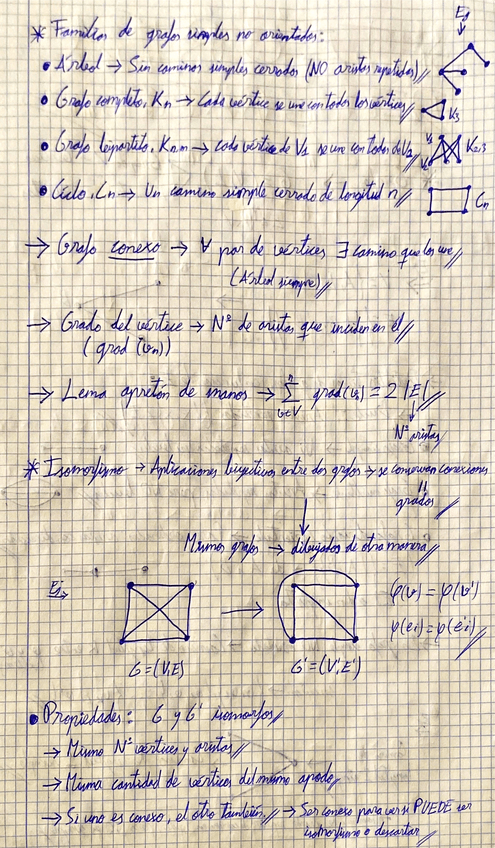 * Familias de grafos simples no orientados:
Ej
• Árbol → Sin caminos simples cerrados (NO aristas repetidas)
• Grafo completo, Kn → Cada vértice se une con todos los vértices K3
• Grafo bipartito, Kn,m → cada vértice de V1 se une con todos de V2 V1 V2 K2,3
• Ciclo, Cn → Un camino simple cerrado de longitud n Cn
→ Grafo conexo → ∀ par de vértices ∃ camino que los une
(Árbol siempre)
→ Grado del vértice → Nº de aristas que inciden en él
(grad (vn))
→ Lema apretón de manos → ∑ n v∈V grad(vi) = 2 |E|
Nº aristas
* Isomorfismo → Aplicaciones biyectivas entre dos grafos → se conservan conexiones
grados
Mismos grafos → dibujados de otra manera
Ej → φ(v) = φ(v')
φ(ei) = φ(e'i)
G=(V,E) G'=(V',E')
• Propiedades: G y G' isomorfos
→ Mismo Nº vértices y aristas
→ Misma cantidad de vértices del mismo
→ Si uno es conexo, el otro también. → Ser conexo para ver si PUEDE ser
isomorfismo o descartar